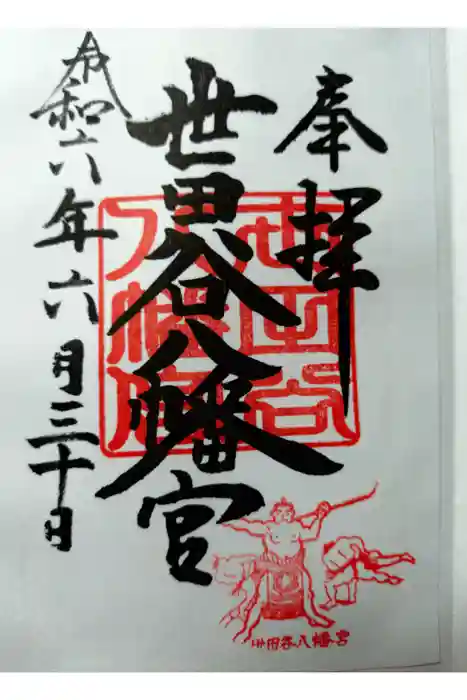 奉拝
世田谷八幡宮
令和六年六月三十日
世田谷八幡宮
世田谷八幡宮